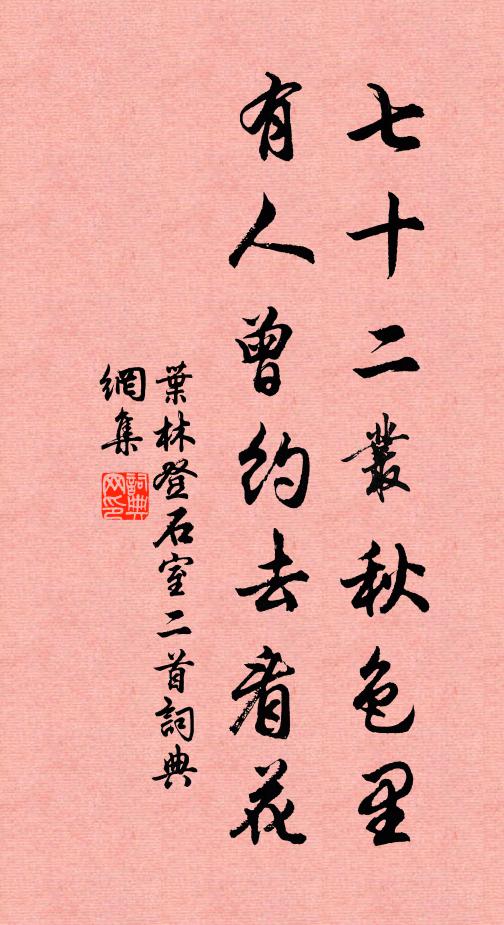 七十二叢秋色里
有人曾約去看花
葉林登石室二首詞典
網集
詞典
网印